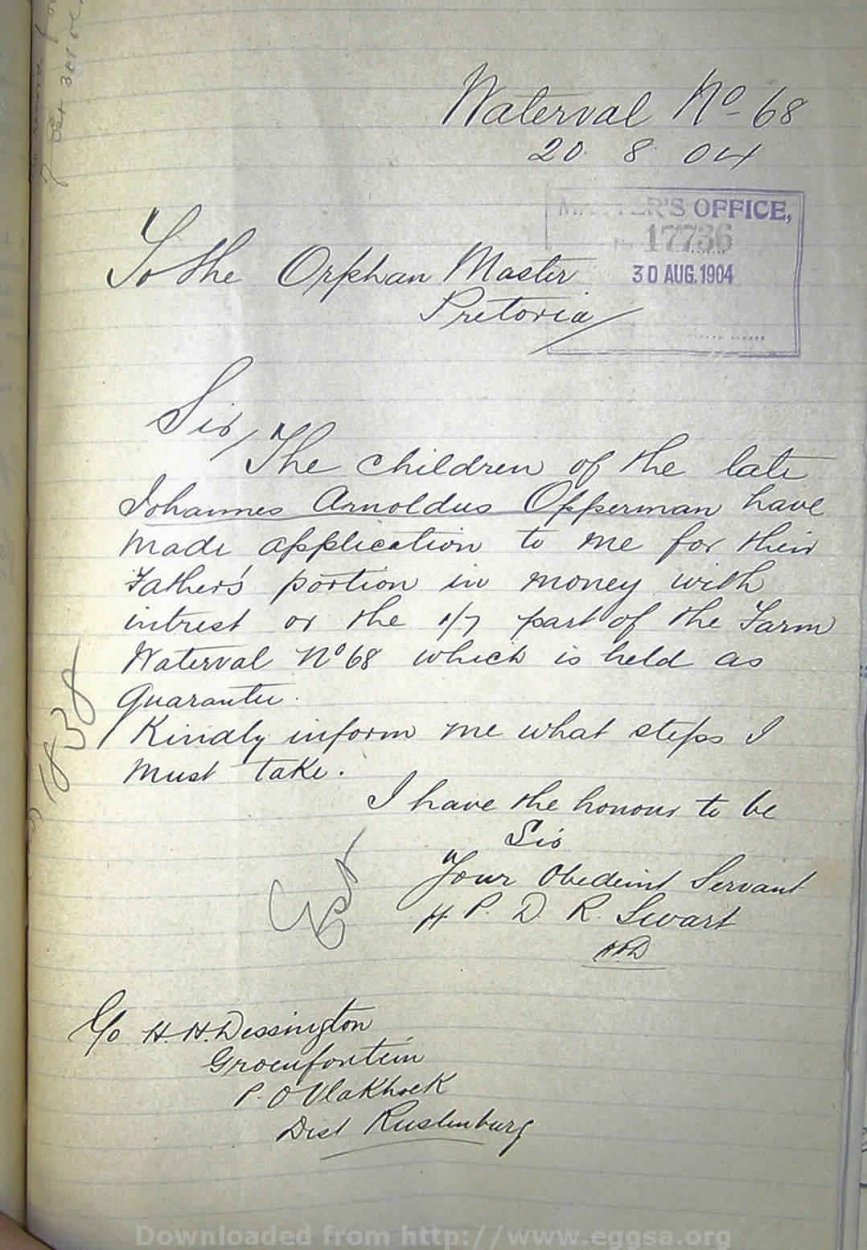 Waterval No 68
20 8 04
MASTER'S OFFICE,
No 17736
30 AUG. 1904
To the Orphan Master
Pretoria
Sir,
The children of the late
Johannes Arnoldus Opperman have
made application to me for their
Father's portion in money with
intrest or the 1/7 part of the Farm
Waterval No 68 which is held as
Guarantee.
Kindly inform me what steps I
must take.
I have the honour to be
Sir
Your Obedeint Servant
H P. D. R. Swart
HHD
1838
C/o H. H. Dessington
Groenfontein
P. O Vlakhoek
Dist Rustenburg
Downloaded from http://www.eggsa.org